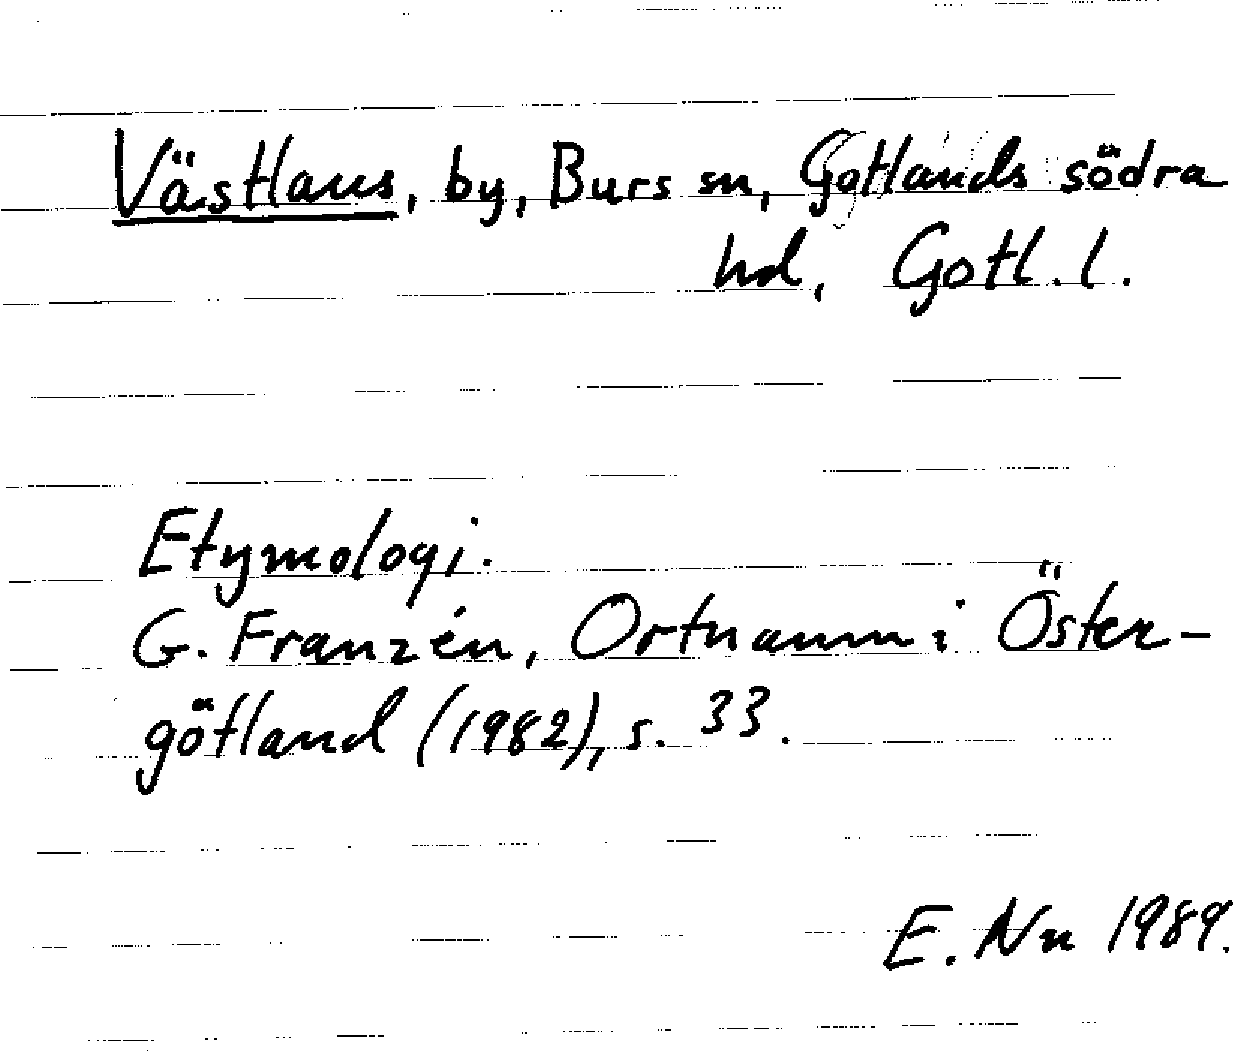 Västlaus, by, Burs sn, Gotlands södra
hd, Gotl. l.
Etymologi.
G. Franzén, Ortnamn i Öster-
götland (1982), s. 33.
E. Nn 1989.